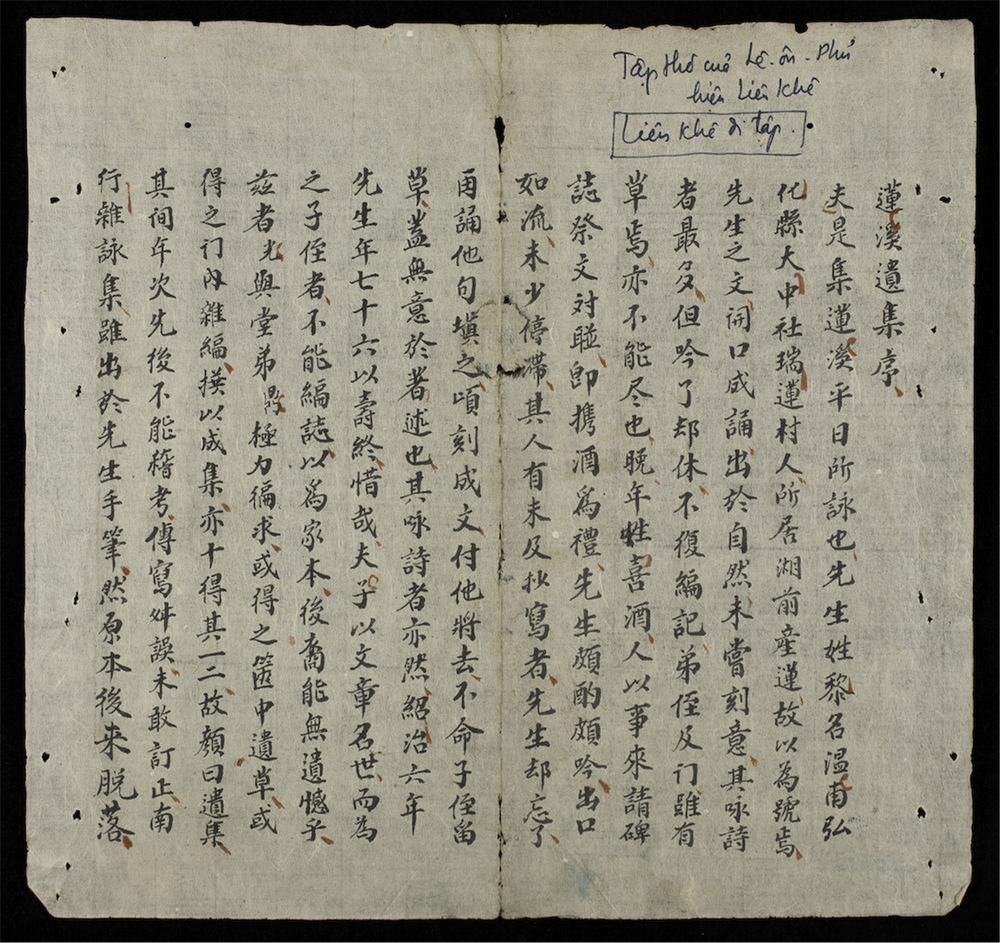 Tập thơ của Lê-ôn-Phủ
hiệu Liên Khê
Liên Khê di tập.
蓮溪遺集序
夫是集蓮溪平日所詠也先生姓黎名溫甫弘
化縣大中社瑞蓮村人所居湖前產蓮故以為號焉
先生之文開口成誦出於自然未嘗刻意其咏詩
者最多但吟了却休不復編記弟侄及门雖有
草焉亦不能尽也晚年性喜酒人以事來請碑
誌祭文対聯即携酒為禮先生頗酌頗吟出口
如流未少停滯其人有未及抄寫者先生却忘了
再誦他句塡之頃刻成文付他將去不命子侄留
草蓋無意於著述也其咏詩者亦然紹治六年
先生年七十六以壽終惜哉夫子以文章名世而為
之子侄者不能編誌以為家本後裔能無遺憾乎
兹者光與堂弟鼎極力徧求或得之篋中遺草或
得之门內雜編撰以成集亦十得其一二故顏曰遺集
其间年次先後不能稽考傳寫舛誤未敢訂正南
行雜詠集雖出於先生手筆然原本後来脱落